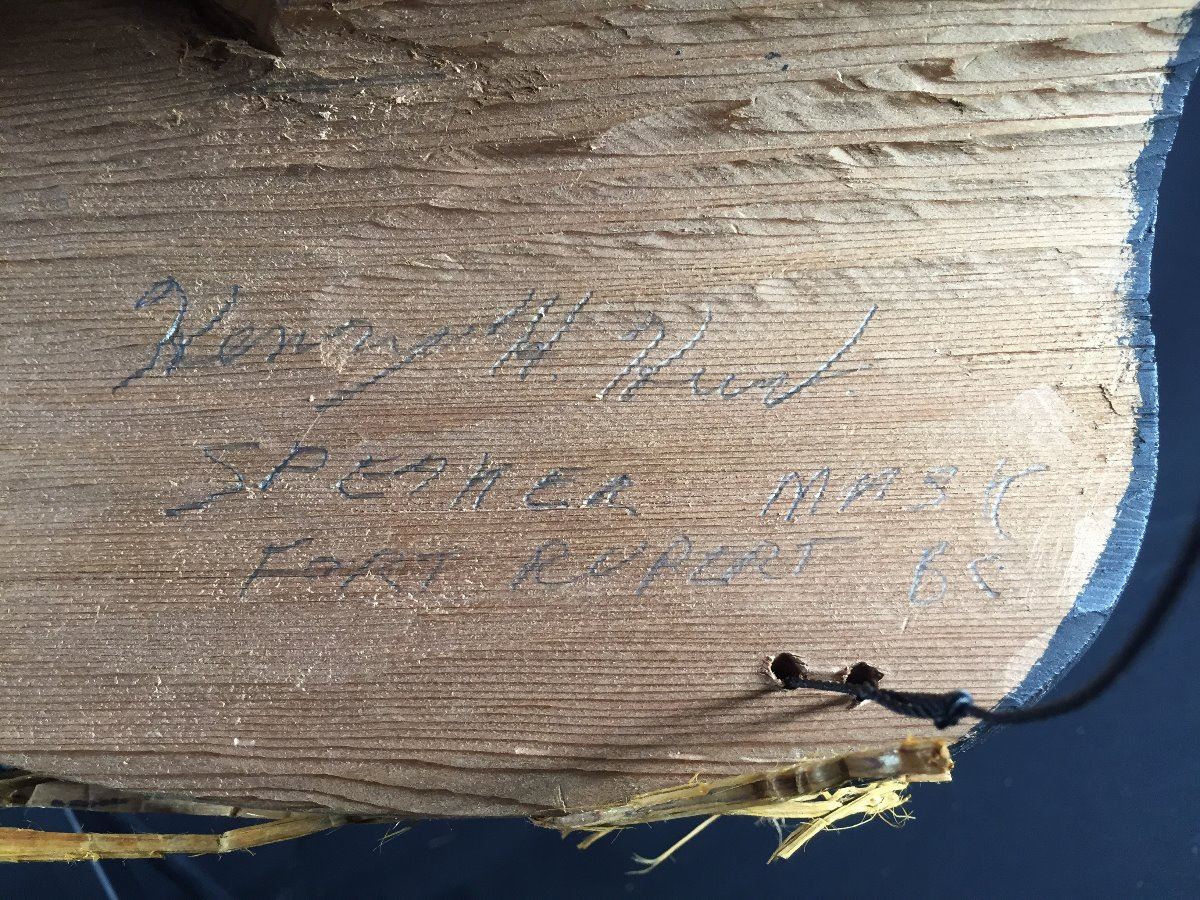 Henry H. Hunt.
SPEAKER MASK
FORT RUPERT BC